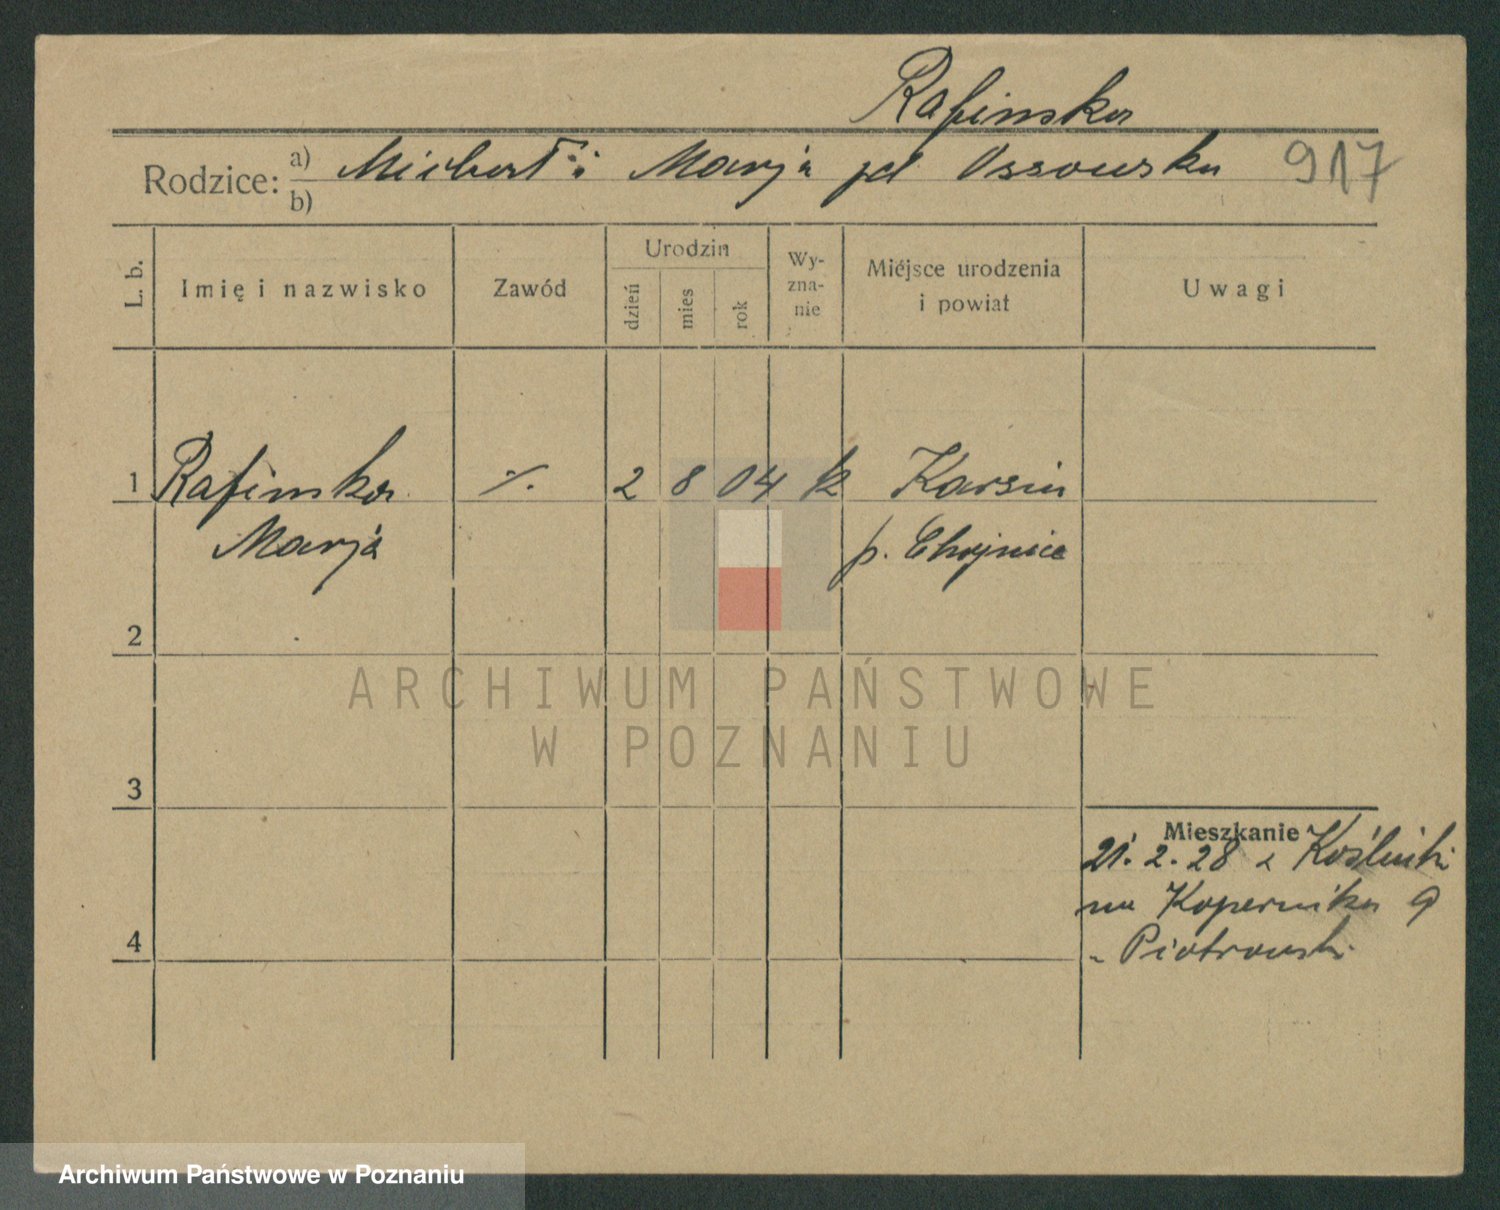 Rafinska
Rodzice: a) Michał i Marja zd Ossowska 917
b)
L. b. Imię i nazwisko Zawód Urodzin dzień mies rok Wyznanie Miejsce urodzenia i powiat Uwagi
1 Rafinska ·/. 2 8 04 k Karsin
Marja p. Chojnice
2
ARCHIWUM PAŃSTWOWE
W POZNANIU
3
Mieszkanie
21. 2. 28 z Koślinki
na Kopernika 9
" Piotrowski
4
Archiwum Państwowe w Poznaniu